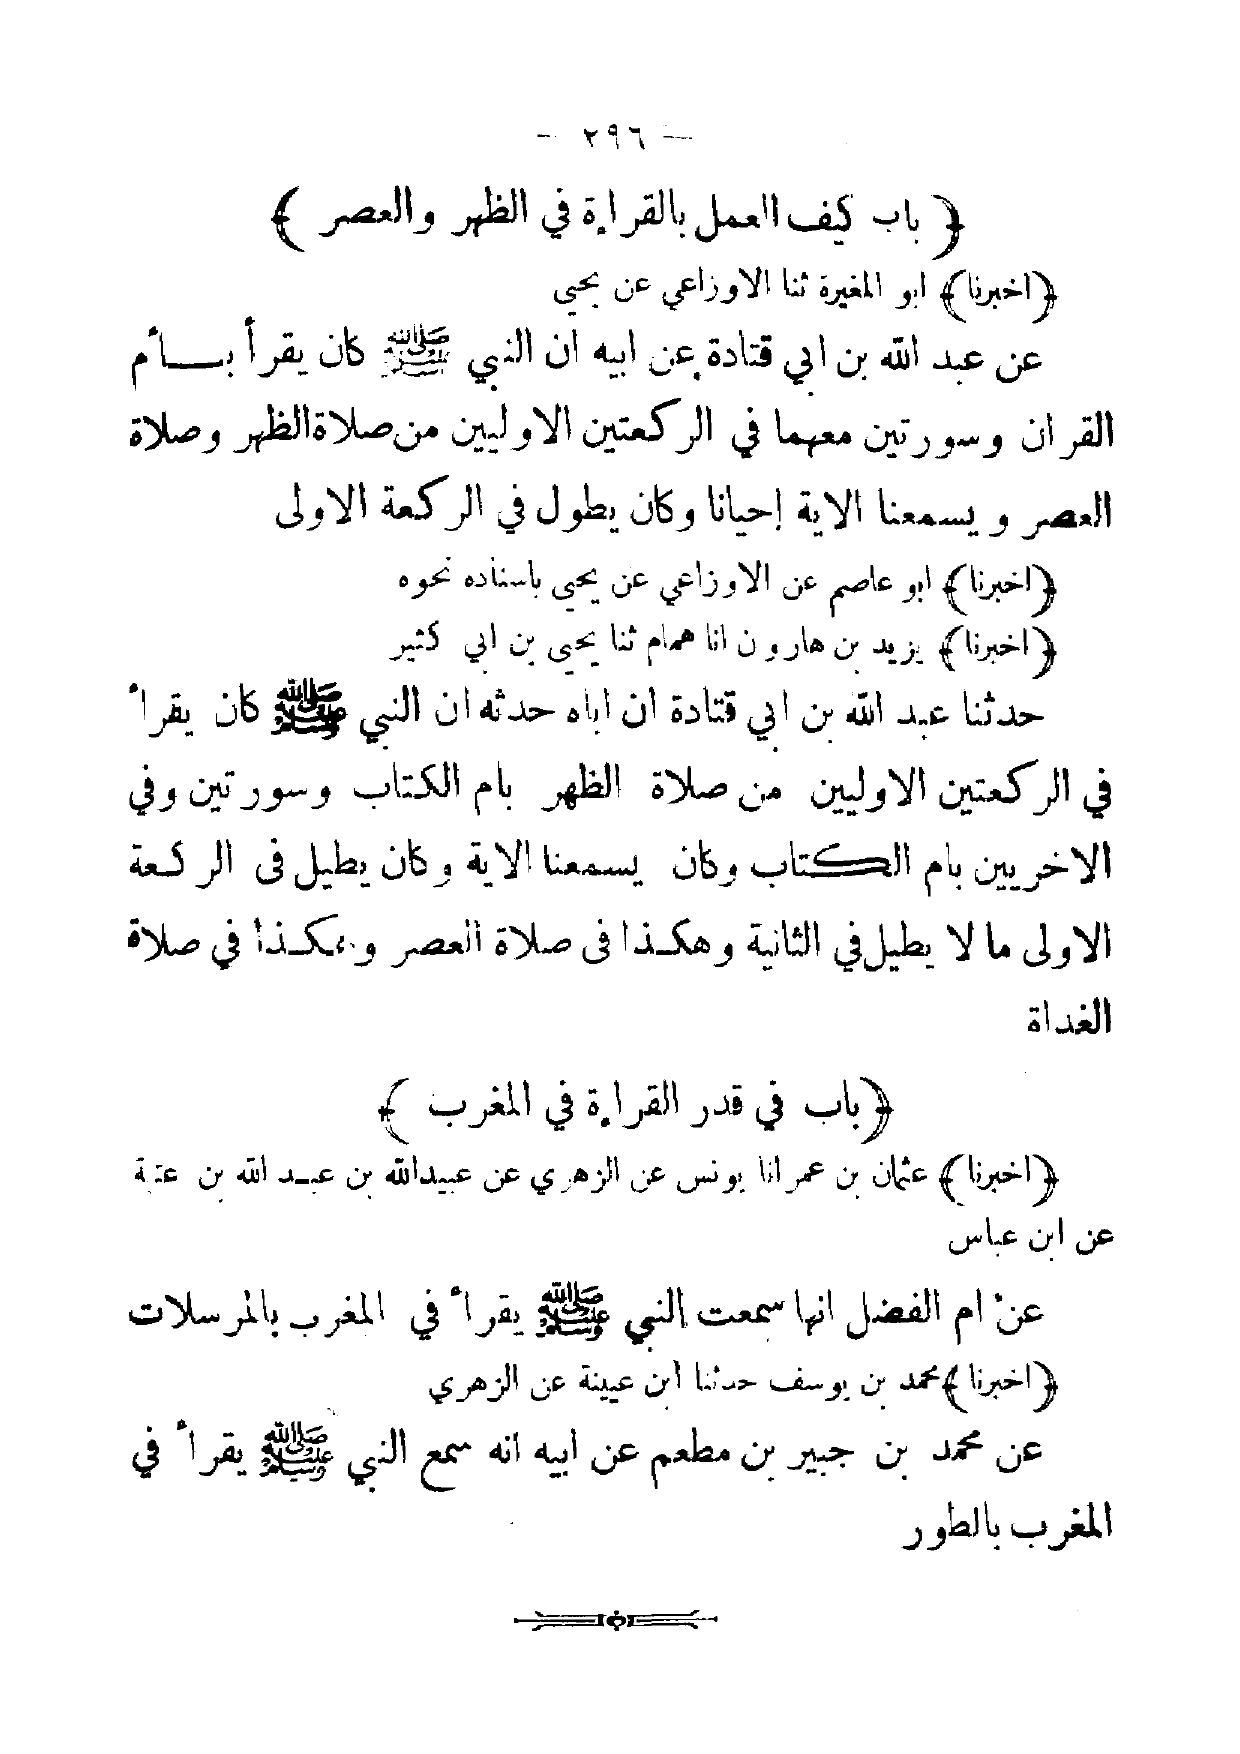 — ٢٩٦ —
﴿ باب كيف العمل بالقراءة في الظهر والعصر ﴾
﴿اخبرنا﴾ ابو المغيرة ثنا الاوزاعي عن يحيى
عن عبد الله بن ابي قتادة عن ابيه ان النبي ﷺ كان يقرأ بـــأم
القران وسورتين معهما في الركعتين الاوليين من صلاة الظهر وصلاة
العصر و يسمعنا الاية إحيانا وكان يطول في الركعة الاولى
﴿اخبرنا﴾ ابو عاصم عن الاوزاعي عن يحيى باسناده نحوه
﴿اخبرنا﴾ يزيد بن هارون انا همام ثنا يحيى بن ابي كثير
حدثنا عبد الله بن ابي قتادة ان اباه حدثه ان النبي ﷺ كان يقرأ
في الركعتين الاوليين من صلاة الظهر بام الكتاب وسورتين وفي
الاخريين بام الكتاب وكان يسمعنا الاية وكان يطيل في الركعة
الاولى ما لا يطيل في الثانية وهكذا في صلاة العصر وهكذا في صلاة
الغداة
﴿باب في قدر القراءة في المغرب ﴾
﴿اخبرنا﴾ عثمان بن عمر انا يونس عن الزهري عن عبيدالله بن عبد الله بن عتبة
عن ابن عباس
عن ام الفضل انها سمعت النبي ﷺ يقرأ في المغرب بالمرسلات
﴿اخبرنا﴾ محمد بن يوسف حدثنا ابن عيينة عن الزهري
عن محمد بن جبير بن مطعم عن ابيه انه سمع النبي ﷺ يقرأ في
المغرب بالطور